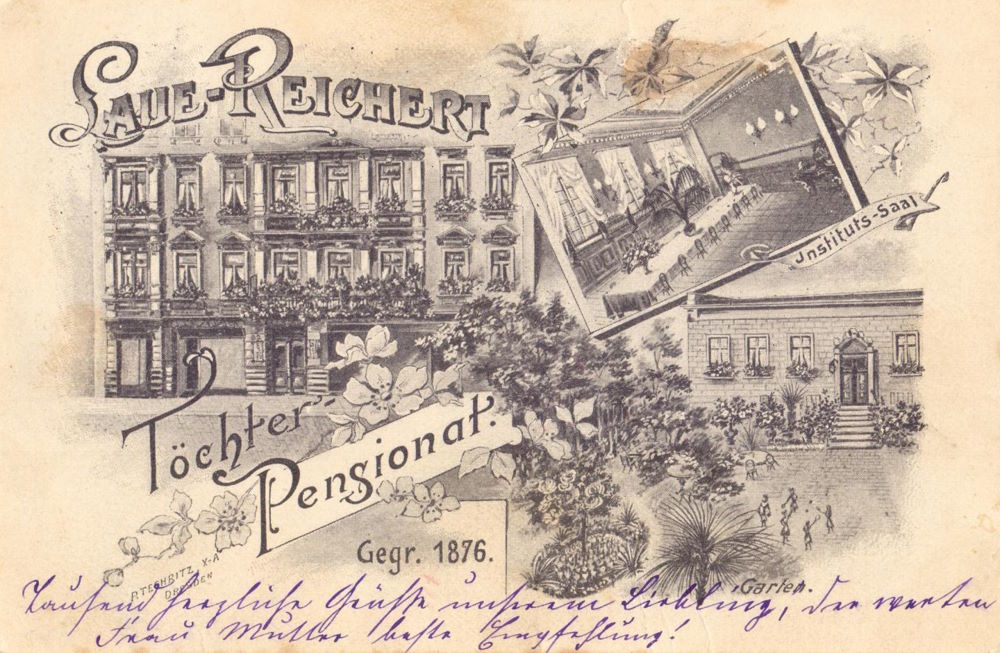 Laue-Reichert
„Instituts-Saal
Töchter-
Pensionat.
Gegr. 1876.
P. TESHBITZ X-A
DRESDEN
„Garten.
Tausend herzliche Grüße unserem Liebling, der werten
Frau Mutter beste Empfehlung!